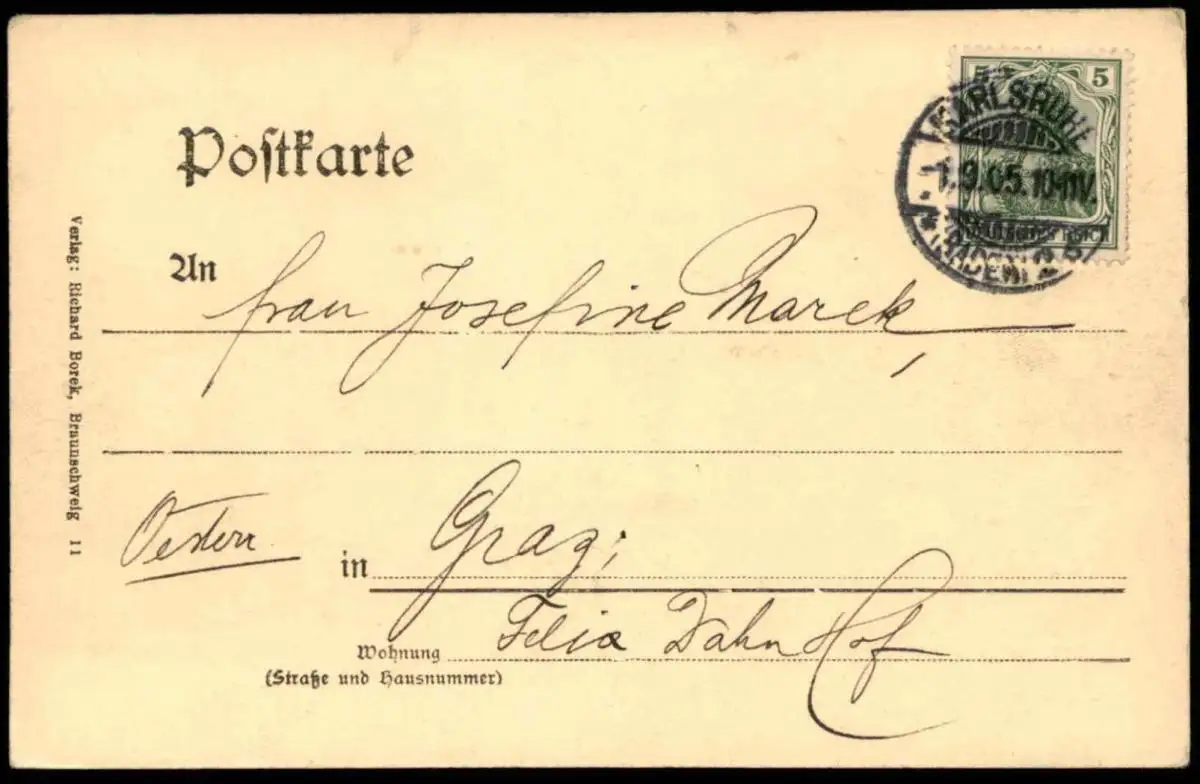 Postkarte
5 5
KARLSRUHE
1.9.05.10-11V.
(BADEN) 2
REICH
An Frau Josefine Marek,
Oesterr
in Graz,
Wohnung Felix Dahn Hof
(Straße und Hausnummer)
Verlag: Richard Borek, Braunschweig 11